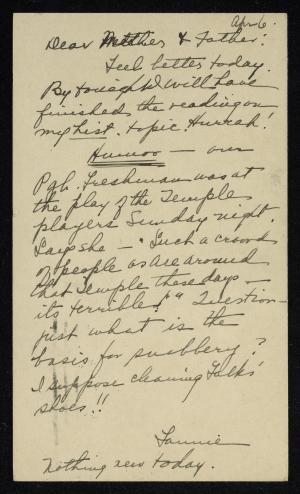 Apr 6.
Dear Mother & Father:
Feel better today.
By tonight I will have
finished the reading on
my hist. topic. Hurrah!
Humor — our
Pgh. Freshman was at
the play of the Temple
players Sunday night.
Says she — "Such a crowd
of people as are around
that Temple these days —
its terrible!" Question —
just what is the
basis for snobbery?
I suppose cleaning Folks'
shoes!!
Fannie
Nothing new today.